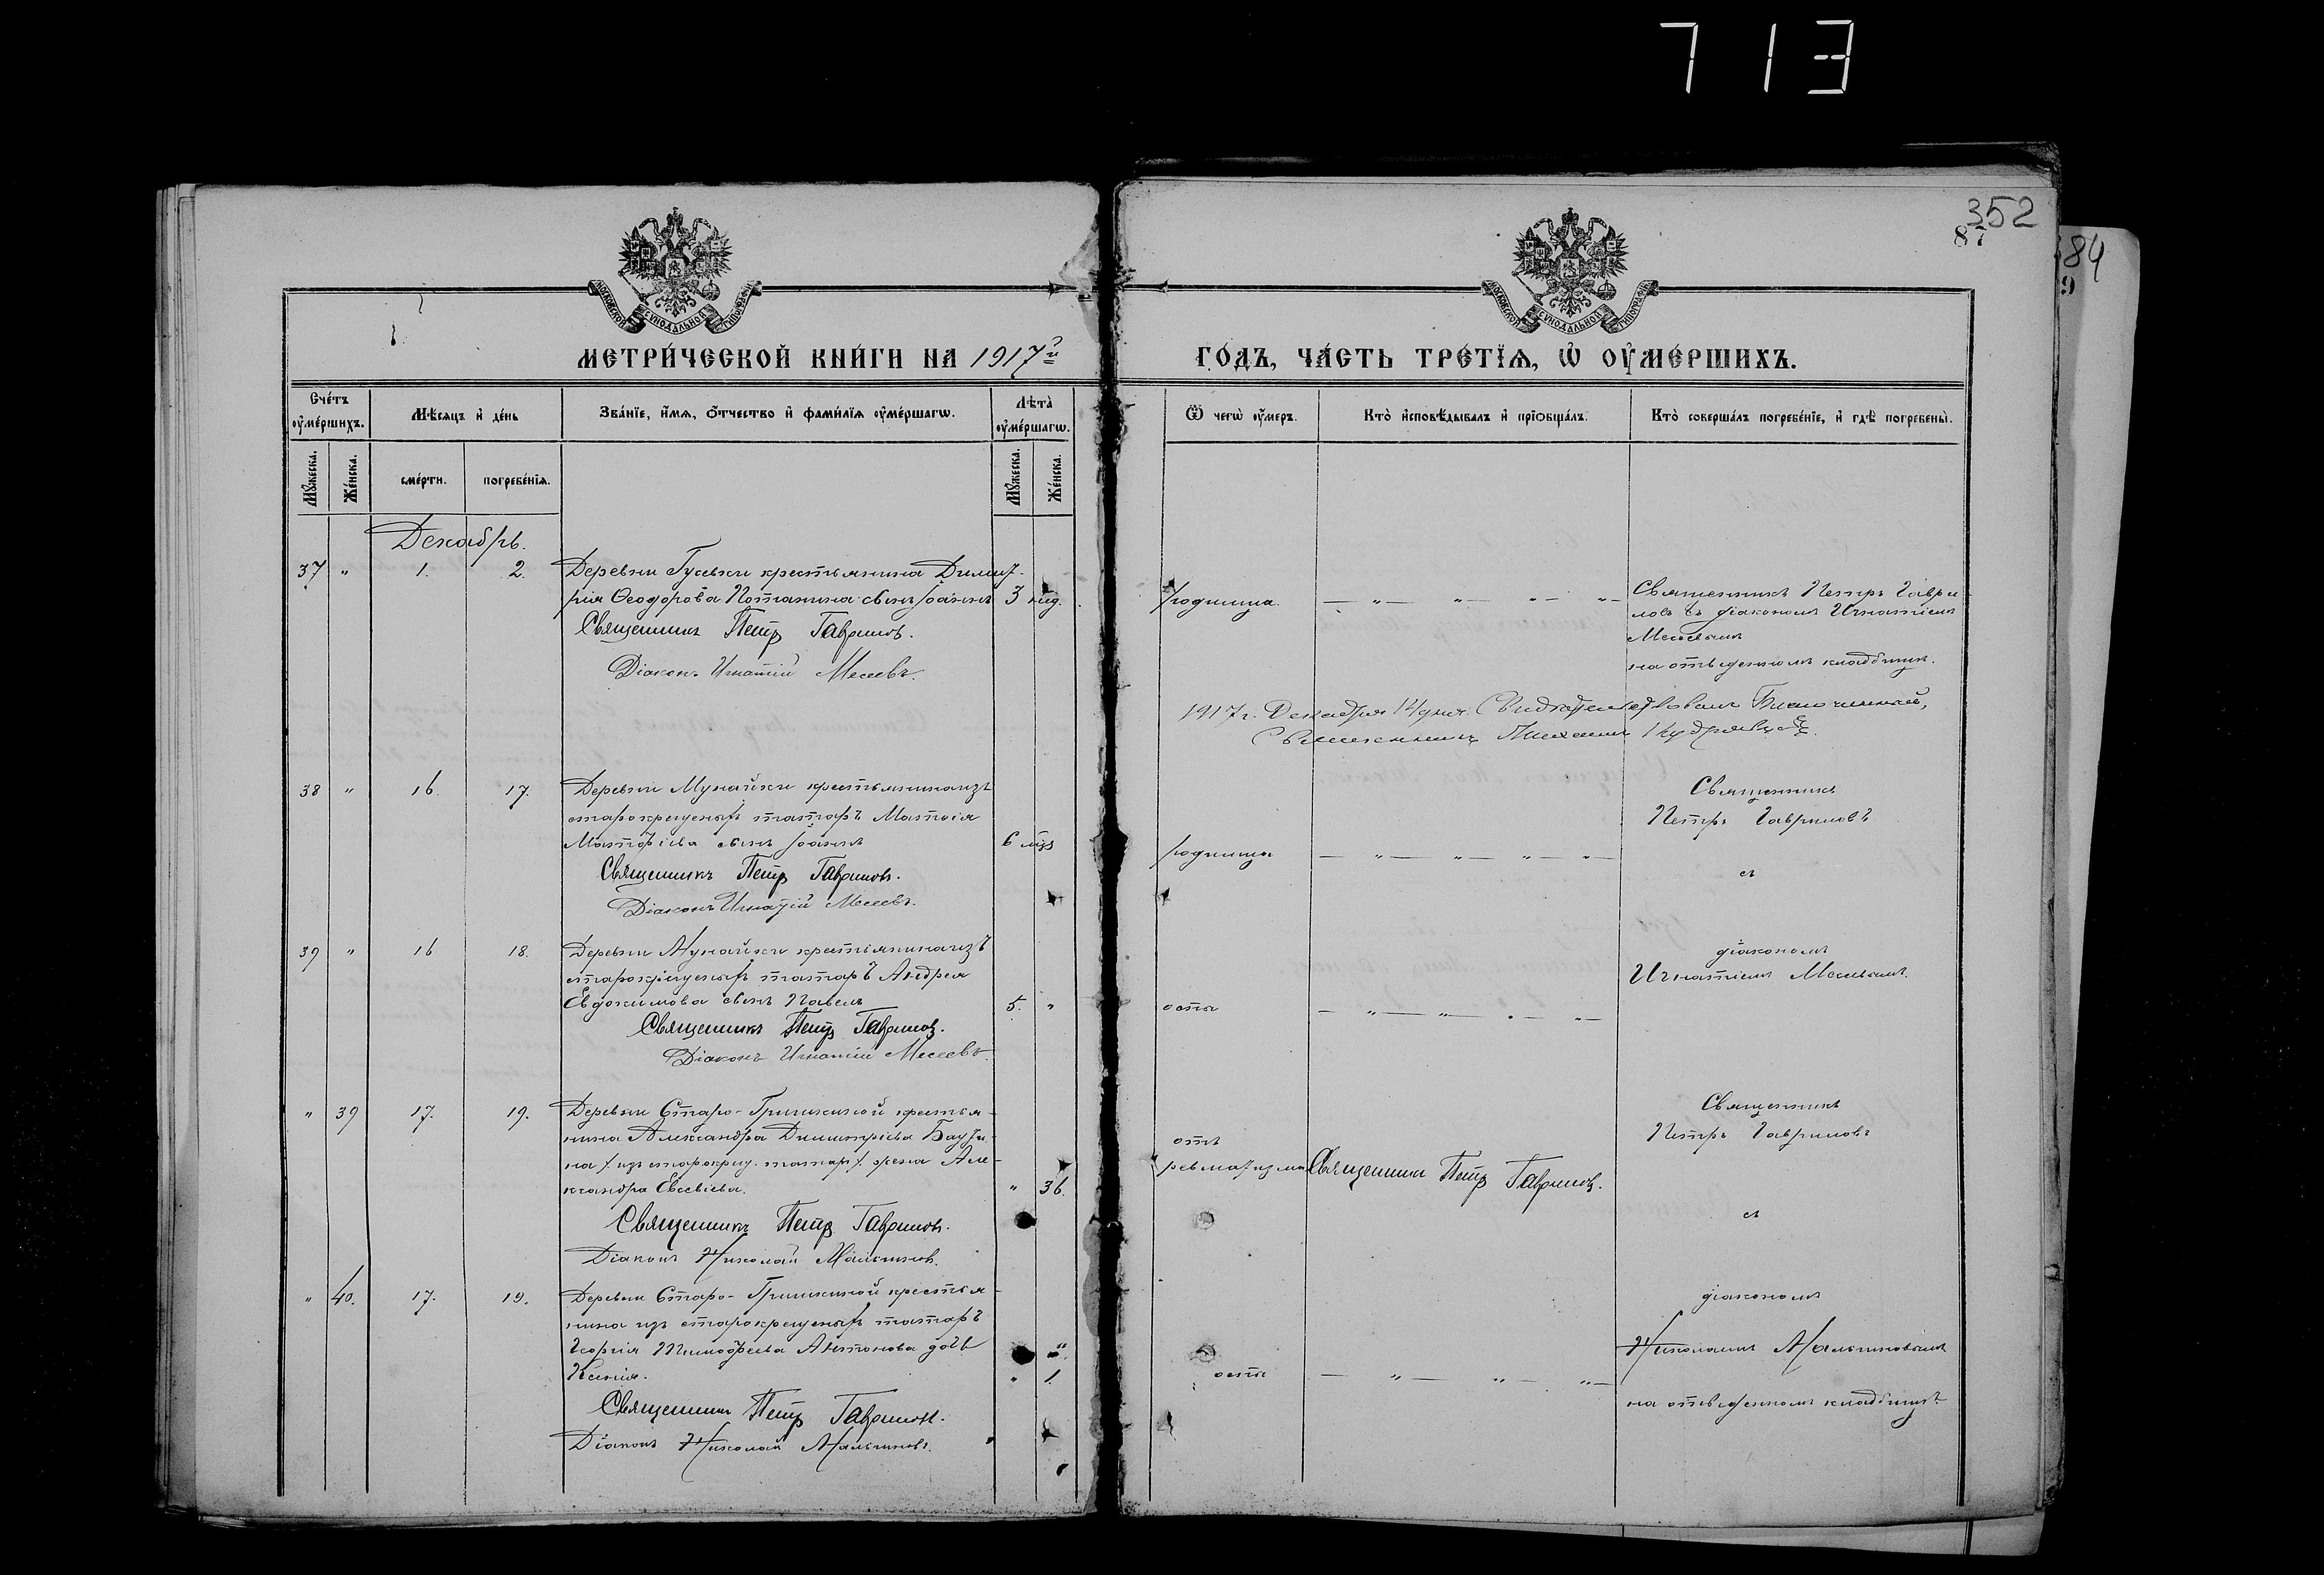 713
352
87
384
9
МОСКОВСКОЙ СѴНОДАЛЬНОЙ ТИПОГРАФІИ
МОСКОВСКОЙ СѴНОДАЛЬНОЙ ТИПОГРАФІИ
МЕТРИ́ЧЕСКОЙ КНИ́ГИ НА 1917й
ГО́ДЪ, ЧА́СТЬ ТРЕ́ТЇѦ, Ѡ҆ ОУ҆МЕ́РШИХЪ.
Сче́тъ оу҆ме́ршихъ.
Мѣ́сяцъ и҆ де́нь
Зва́нїе, и҆́мѧ, ѻ҆́тчество и҆ фами́лїѧ оу҆ме́ршагѡ.
Лѣ́та оу҆ме́ршагѡ.
Ѿ чегѡ̀ оу҆́меръ.
Кто̀ и҆сповѣ́дывалъ и҆ прїѡбща́лъ.
Кто̀ соверша́лъ погребе́нїе, и҆ гдѣ̀ погребены̀.
Мꙋ́жеска.
Же́нска.
сме́рти.
погребе́нїѧ.
Мꙋ́жеска.
Же́нска.
Декабрь.
37 " 1. 2. Деревни Гусевки крестьянина Димит-
рія Ѳеодорова Потанина сынъ Іоаннъ 3 нед.
Священникъ Петръ Гавриловъ.
Діаконъ Игнатій Месеевъ.
родимца — " — " — " —
Священникъ Петръ Гаври-
ловъ съ діакономъ Игнатіемъ
Месеевымъ
на отведенномъ кладбищѣ.
1917 г. Декабря 14 дня. Свидѣтельствовалъ Благочинный,
Священникъ Михаилъ Кудрявцевъ
38 " 16. 17. Деревни Мунайки крестьянина изъ
старокрещеныхъ татаръ Матѳія
Матфѣева сынъ Іоаннъ 6 мѣс
Священникъ Петръ Гавриловъ.
Діаконъ Игнатій Месеевъ.
родимца — " — " — " — " —
Священникъ
Петръ Гавриловъ
съ
39 " 16 18. Деревни Мунайки крестьянина изъ
старокрещеныхъ татаръ Андрея
Евдокимова сынъ Павелъ 5. "
Священникъ Петръ Гавриловъ.
Діаконъ Игнатій Месеевъ.
оспы — " — " — " — " —
діакономъ
Игнатіемъ Месеевымъ.
" 39 17. 19. Деревни Старо-Гришкиной крестья-
нина Александра Димитріева
на /изъ старокрещ. татаръ/ жена Але-
ксандра Евсевіева. " 36.
Священникъ Петръ Гавриловъ.
Діаконъ Николай Мальтиновъ.
отъ
ревматизма Священникъ Петръ Гавриловъ.
Священникъ
Петръ Гавриловъ
съ
" 40. 17. 19. Деревни Старо-Гришкиной крестья-
нина изъ старокрещеныхъ татаръ
Георгія Тимофеева Антонова дочь
Ксенія. " 1.
Священникъ Петръ Гавриловъ.
Діаконъ Николай
оспы — " — " — " —
діакономъ
Николаемъ
на отведенномъ кладбищѣ.